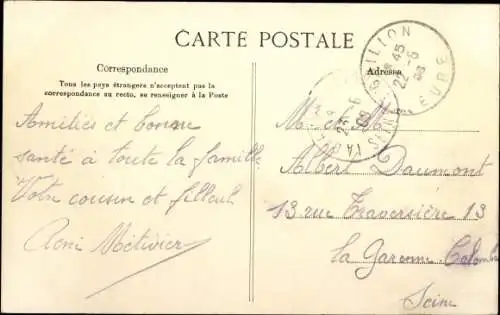 CARTE POSTALE
Correspondance
Tous les pays étrangers n'acceptent pas la
correspondance au recto, se renseigner à la Poste
Amitiés et bonne
santé à toute la famille
Votre cousin et filleul
René Métivier
Adresse
AILLON
22 -5
08
EURE
SEINE
Mr
Albert Daumont
13 rue Traversière 13
la Garenne Colombes
Seine